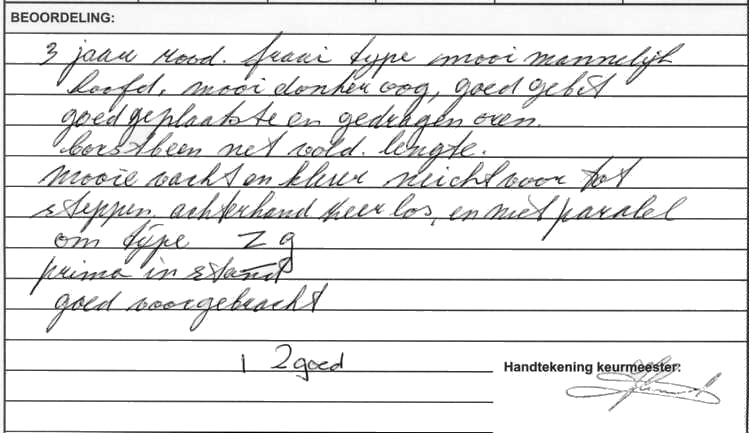 BEOORDELING:
3 jaar rood. fraai type mooi mannelijk
hoofd, mooi donker oog, goed gebit
goed geplaatste en gedragen oren.
borstbeen net vold. lengte.
mooie vacht en kleur neicht voor tot
steppen, achterhand zeer los, en niet paralel
om type Z g
prima in stand
goed voorgebracht
1 Zgoed
Handtekening keurmeester: